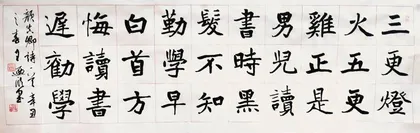 三更燈
火五更
雞正是
男兒讀
書時黑
髮不知
勤學早
白首方
悔讀書
遲勸學
顏真卿詩辛丑
之春